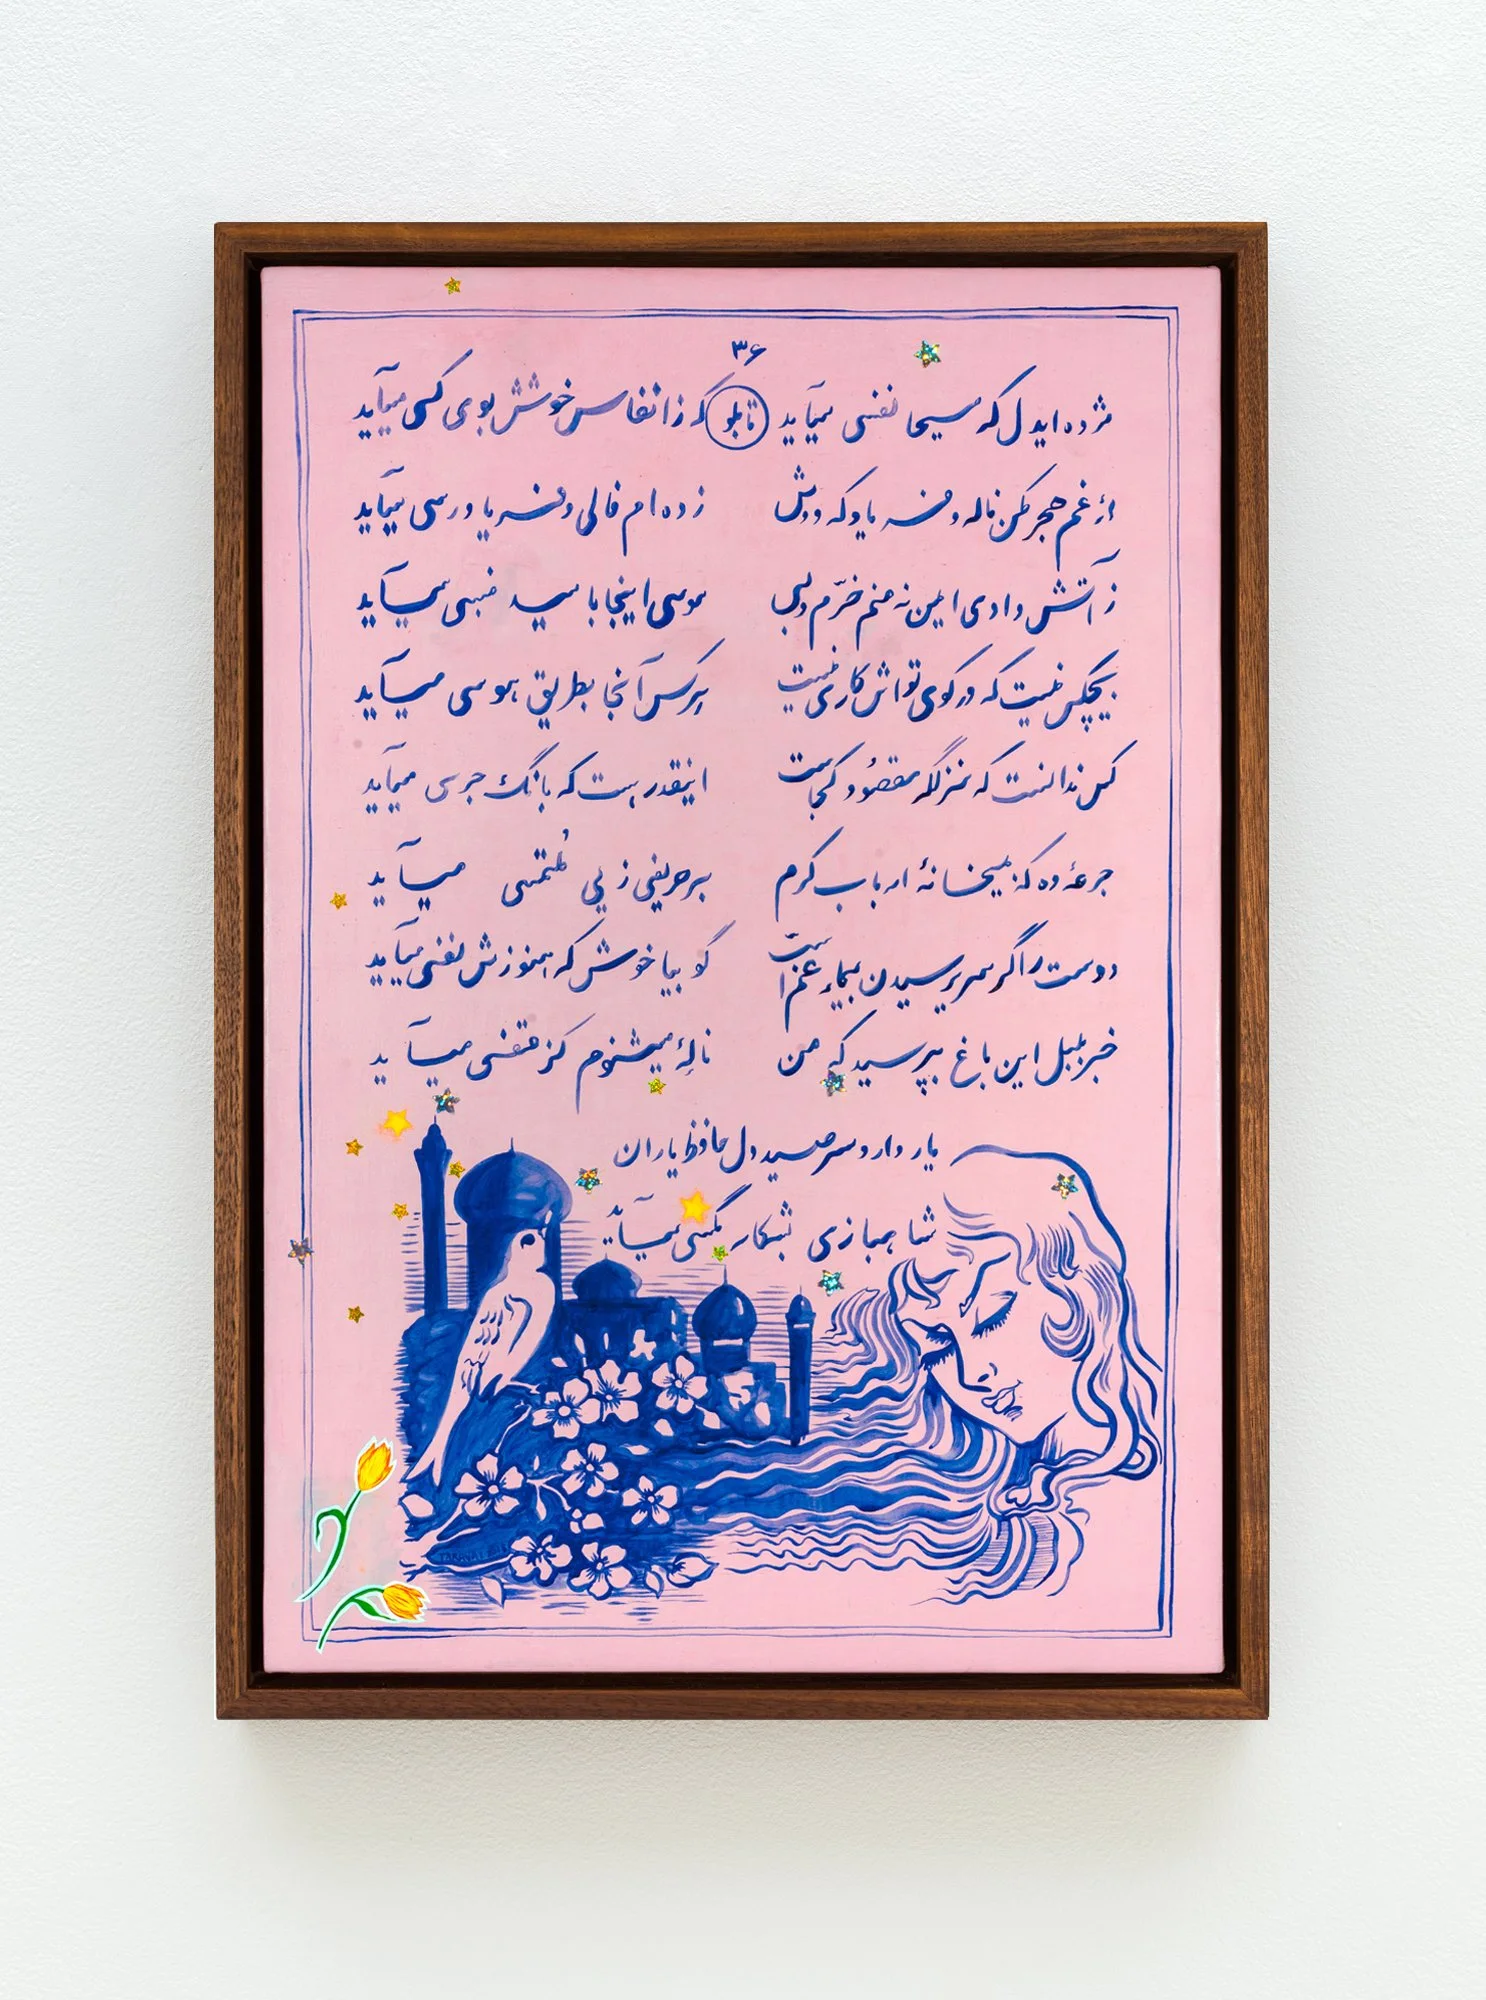 ۳۶
مژده ایدل که مسیحا نفسی میآید تابلو که ز انفاس خوشش بوی کسی میآید
از غم هجر مکن ناله و فریاد که دوش زده ام فالی و فریاد رسی میآید
ز آتش وادی ایمن نه منم خرّم و بس موسی اینجا بامید قبسی میآید
هیچکس نیست که در کوی تواش کاری نیست هر کس آنجا بطریق هوسی میآید
کس ندانست که منزلگه مقصود کجاست اینقدر هست که بانگ جرسی میآید
جرعهٔ ده که بمیخانهٔ ارباب کرم هر حریفی ز پی مُلتمسی میآید
دوست را گر سر پرسیدن بیمار غم است گو بیا خوش که هنوزش نفسی میآید
خبر بلبل این باغ بپرسید که من نالهٔ میشنوم کز قفسی میآید
یار دارد سر صید دل حافظ یاران
شاهبازی بشکار مگسی میآید